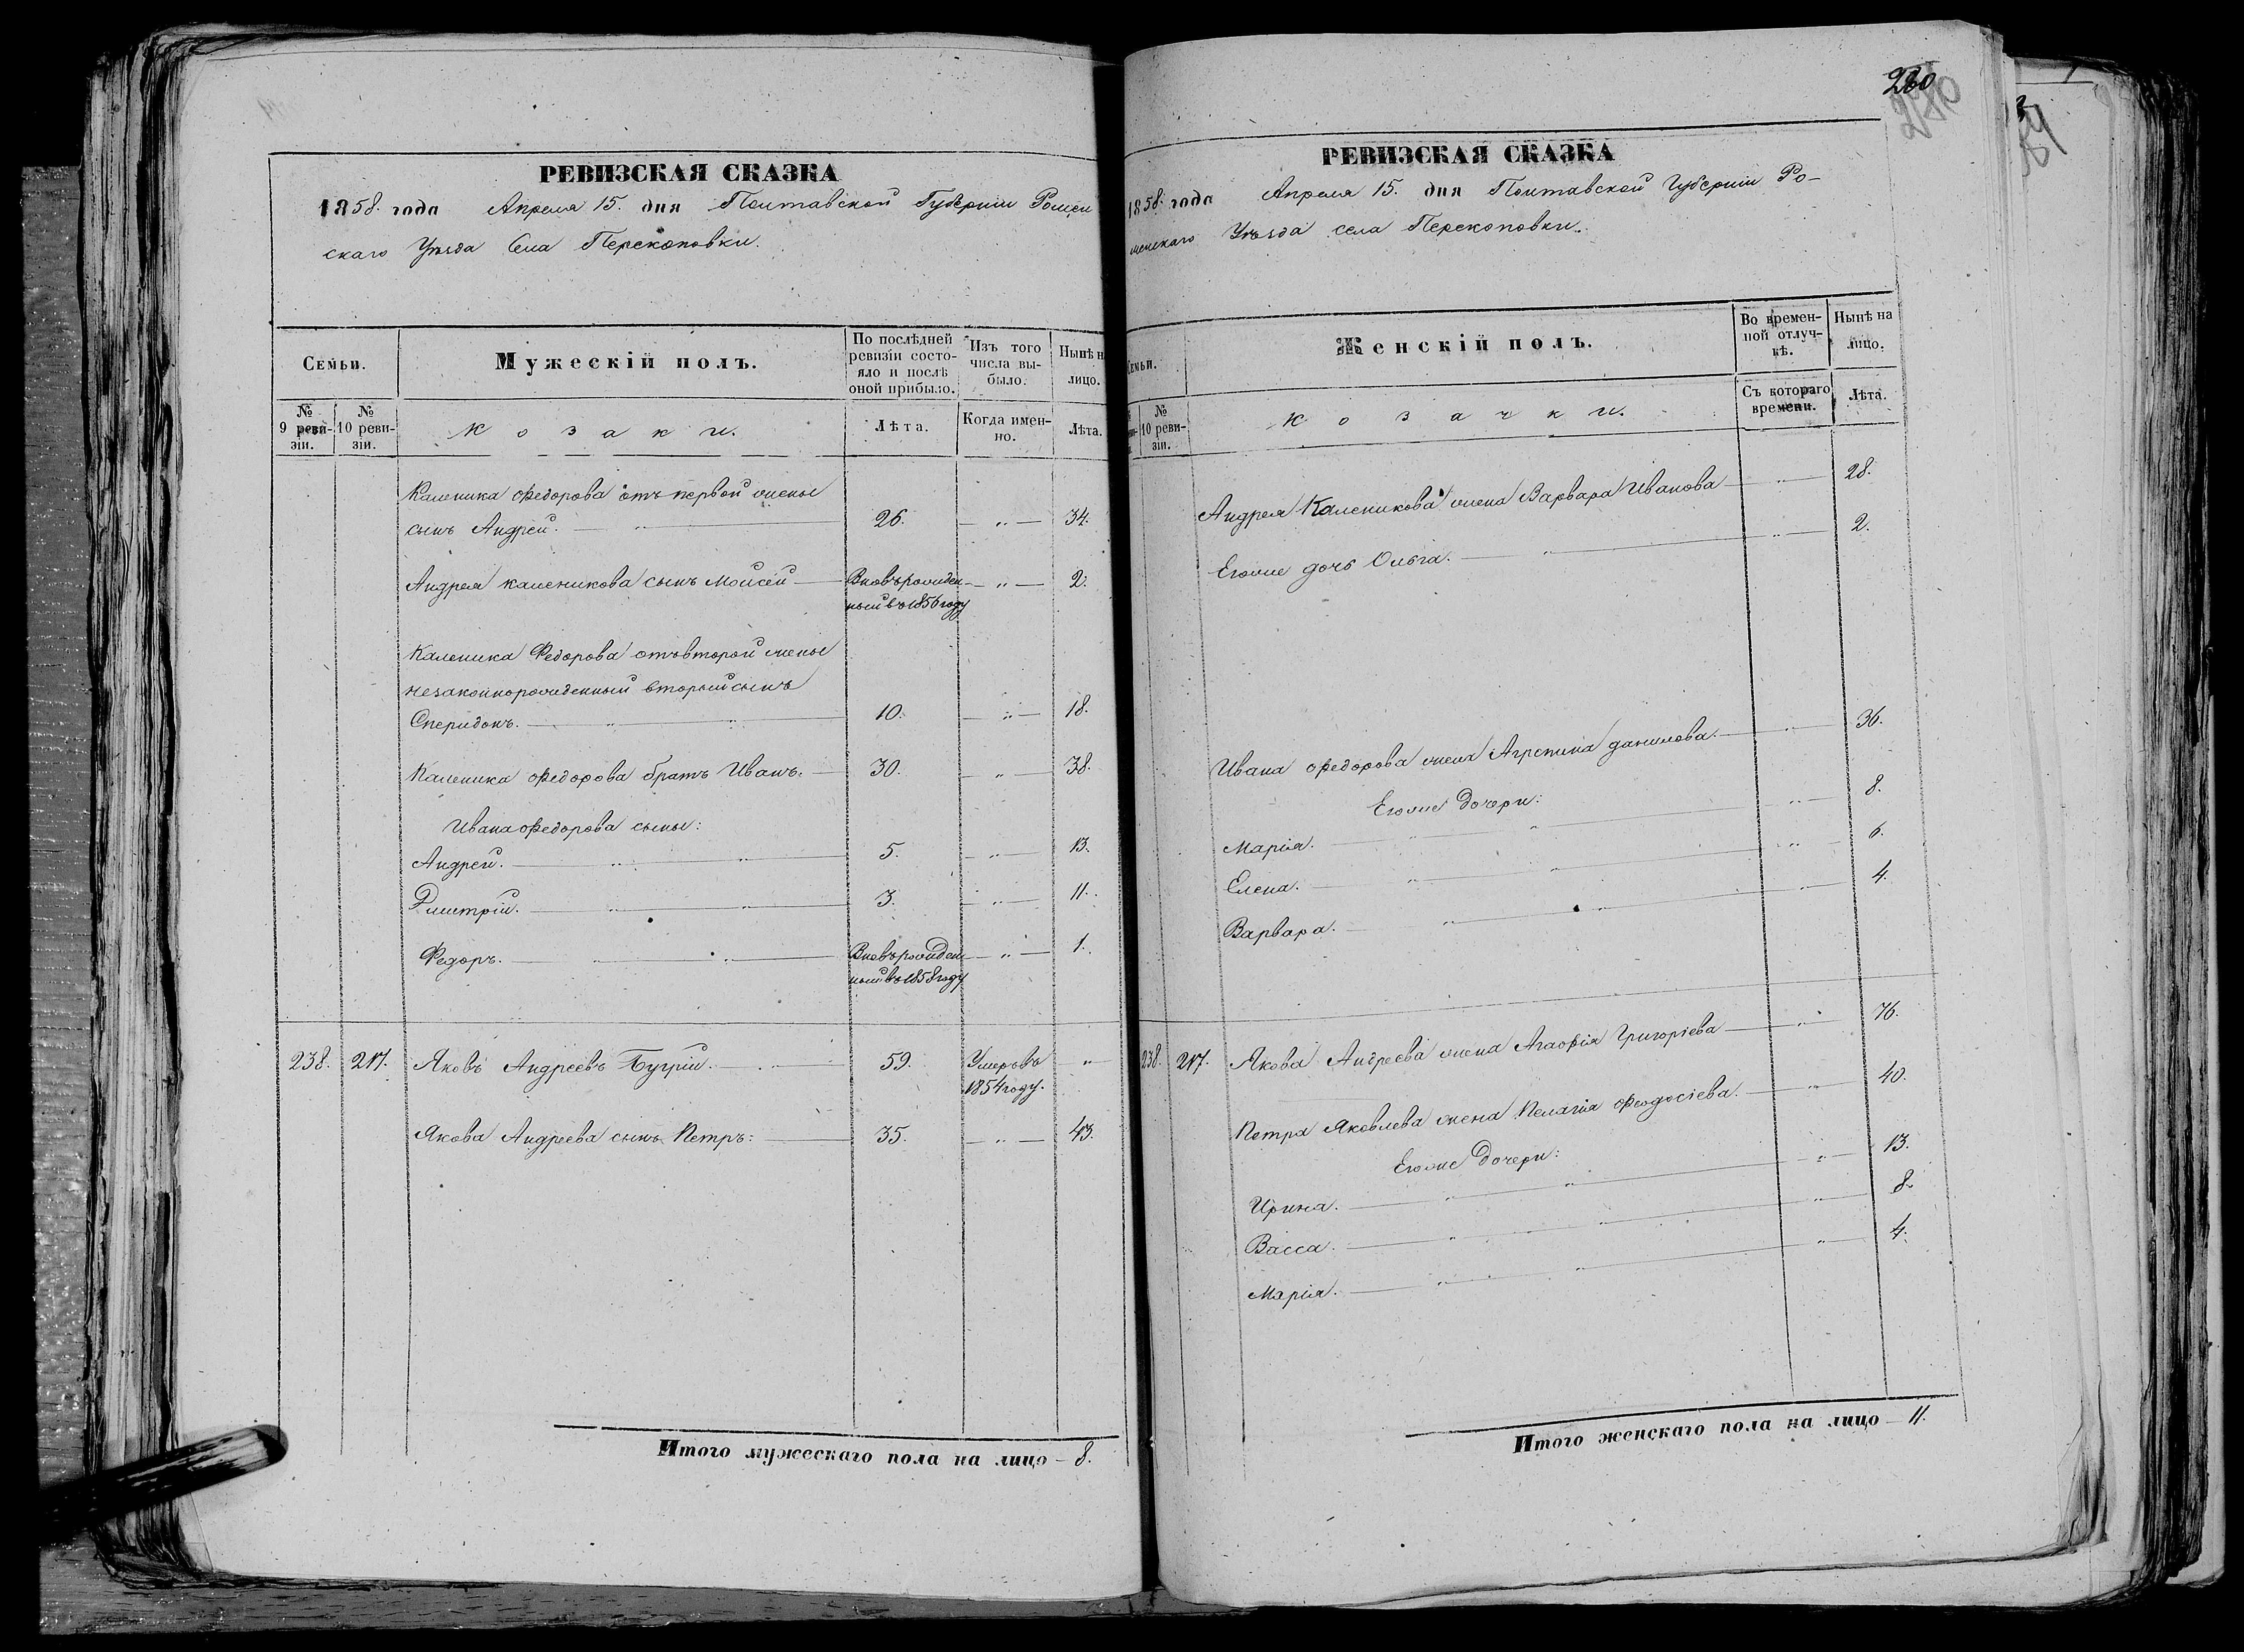 РЕВИЗСКАЯ СКАЗКА
1858. года Апреля 15. дня Полтавской Губерніи Ромен
скаго Уѣзда Села Перекоповки.
Семьи.
Мужескій полъ.
По послѣдней ревизіи состояло и послѣ оной прибыло.
Изъ того числа выбыло.
Нынѣ н
лицо.
№ 9 ревизіи.
№ 10 ревизіи.
Козаки.
Лѣта.
Когда именно.
Лѣта.
Каленика Федорова отъ первой жены
сынъ Андрей. 26. — „ — 34.
Андрея Каленикова сынъ Моисей — Вновьрожден- — „ — 2.
ный въ 1856 году
Каленика Федорова отъ второй жены
незаконнорожденный вторый сынъ
Спиридонъ. 10. — „ — 18.
Каленика Федорова братъ Иванъ. 30. — „ — 38.
Ивана Федорова сыны:
Андрей. 5. — „ — 13.
Дмитрій. 3. — „ — 11.
Федоръ. Вновьрожден- — „ — 1.
ный въ 1858 году
238. 217. Яковъ Андреевъ Бугрій. 59. Умеръ въ „
1854 году.
Якова Андреева сынъ Петръ: 35. — „ — 43.
Итого мужескаго пола на лицо — 8.
260
РЕВИЗСКАЯ СКАЗКА
1858. года Апреля 15. дня Полтавской Губерніи Ро-
менскаго Уѣзда села Перекоповки.
Семьи.
Женскій полъ.
Во временной отлучкѣ.
Нынѣ на лицо.
№ 10 ревизіи.
Козачки.
Съ котораго времени.
Лѣта.
Андрея Каленикова жена Варвара Иванова — „ — 28.
Егоже дочь Ольга. — „ — 2.
Ивана Федорова жена Агрепина Данилова. — „ — 36.
Егоже дочери:
Марія. — „ — 8.
Елена. — „ — 6.
Варвара. — „ — 4.
238. 217. Якова Андреева жена Агафія Григоріева — „ — 76.
Петра Яковлева жена Пелагія Феодосіева. — „ — 40.
Егоже дочери:
Ирина. — „ — 13.
Васса. — „ — 8.
Марія. — „ — 4.
Итого женскаго пола на лицо — 11.